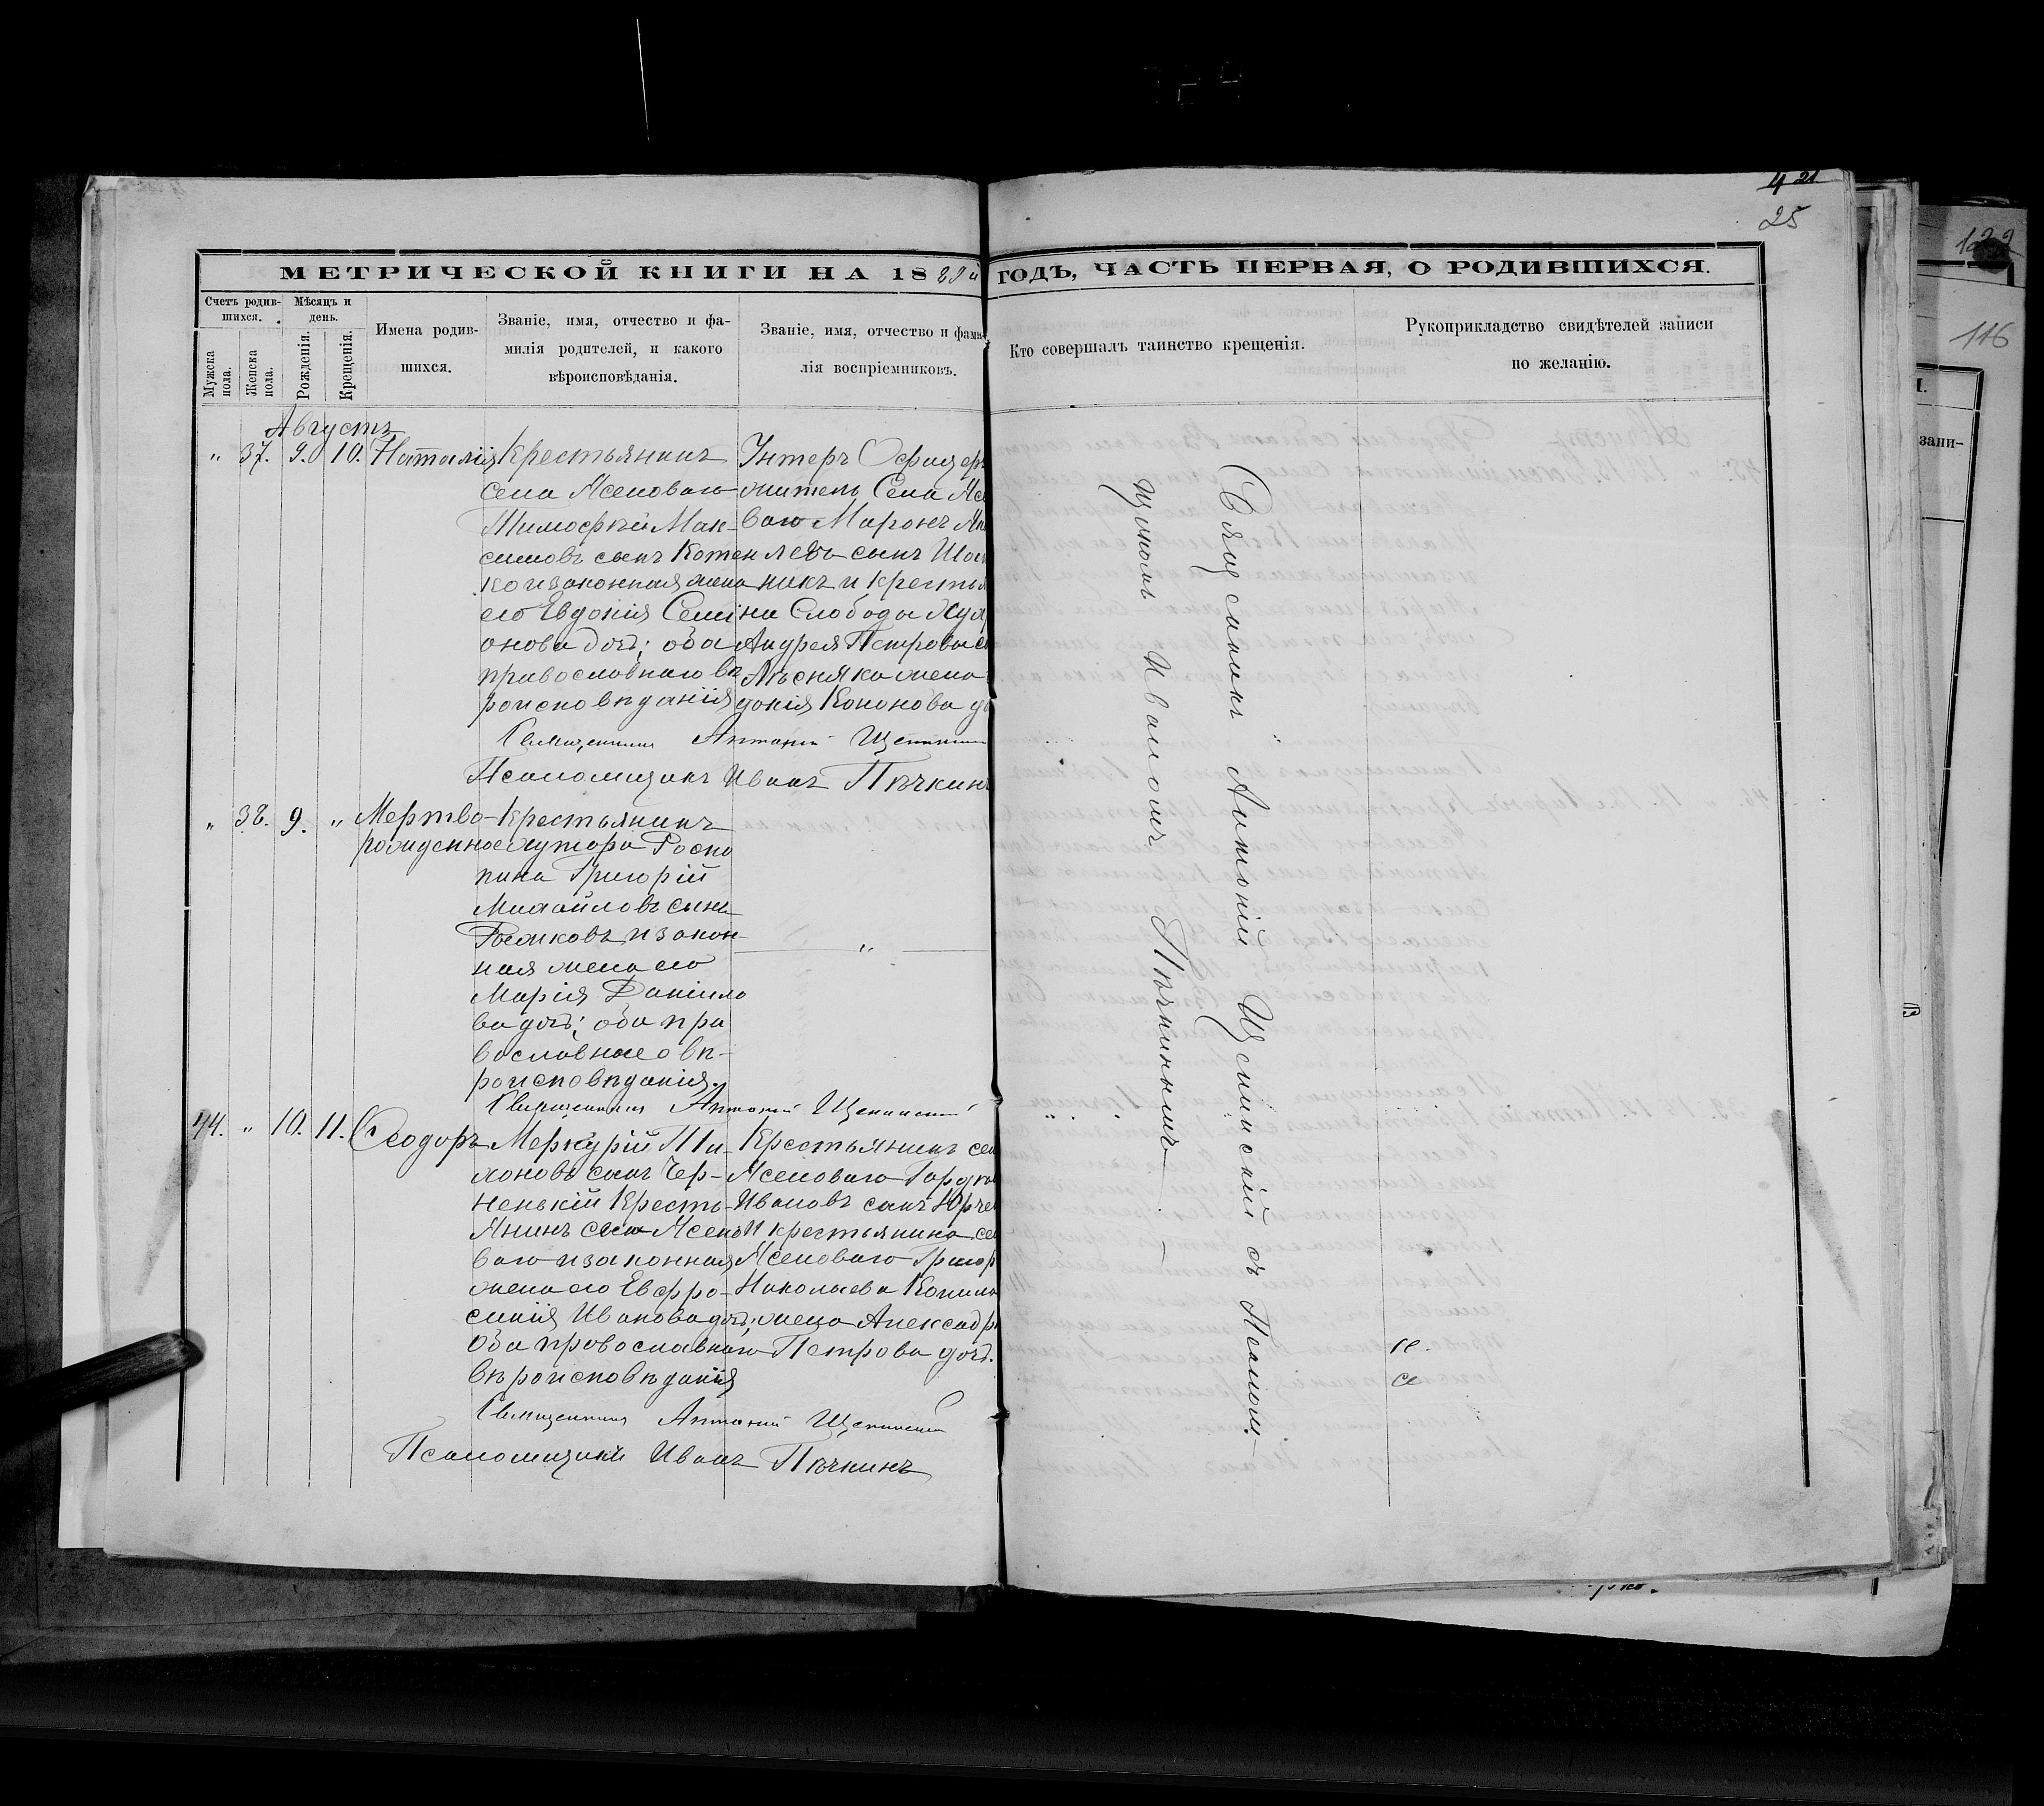 4 21
25
122
116
МЕТРИЧЕСКОЙ КНИГИ НА 1881й ГОДЪ, ЧАСТЬ ПЕРВАЯ, О РОДИВШИХСЯ.
Счетъ родив-
шихся.
Мужска
пола.
Женска
пола.
Мѣсяцъ и
день.
Рожденія.
Крещенія.
Имена родив-
шихся.
Званіе, имя, отчество и фа-
милія родителей, и какого
вѣроисповѣданія.
Званіе, имя, отчество и фами-
лія воспріемниковъ.
Кто совершалъ таинство крещенія.
Рукоприкладство свидѣтелей записи
по желанію.
зани-
Августъ
" 37. 9. 10. Наталія
Крестьянинъ
села Ясеноваго
Тимофѣй Мак-
симовъ сынъ Котен
ко и законная жена
его Евдокія Семi
онова дочь; оба
православнаго вѣ
роисповѣданія
Унтеръ Офицеръ
житель Села Ясе
ваго Миронъ
левъ сынъ
никъ и крестья
на Слободы
Андрея Петрова с
Лѣсняка жена
докія Кононова до
Священникъ Антоній Щепинскій
Псаломщикъ Иванъ Пѣчкинъ
" 38. 9. " Мертво-
рожденное
Крестьянинъ
хутора Роспо
пина Григорій
Михайловъ сынъ
Рыжковъ и закон-
ная жена его
Марія Даніило
ва дочь; оба пра
вославнаго вѣ-
роисповѣданія.
"
Священникъ Антоній Щепинскій
44. " 10. 11. Ѳеодоръ
Меркурій Ти-
хоновъ сынъ Чер-
ненькій Кресть-
янинъ села Ясено
ваго и законная
жена его Евфро-
синія Иванова дочь;
оба православнаго
вѣроисповѣданія
Крестьянинъ сел
Ясеноваго Гордѣй
Ивановъ сынъ Юрче
и крестьянина се
Ясеноваго Григор
Николаева
жена Александр
Петрова дочь.
Священникъ Антоній Щепинскій
Псаломщикъ Иванъ Пѣчкинъ
Священникъ Антоній Щепинскій съ Псалом-
щикомъ Иваномъ Пѣчкинымъ